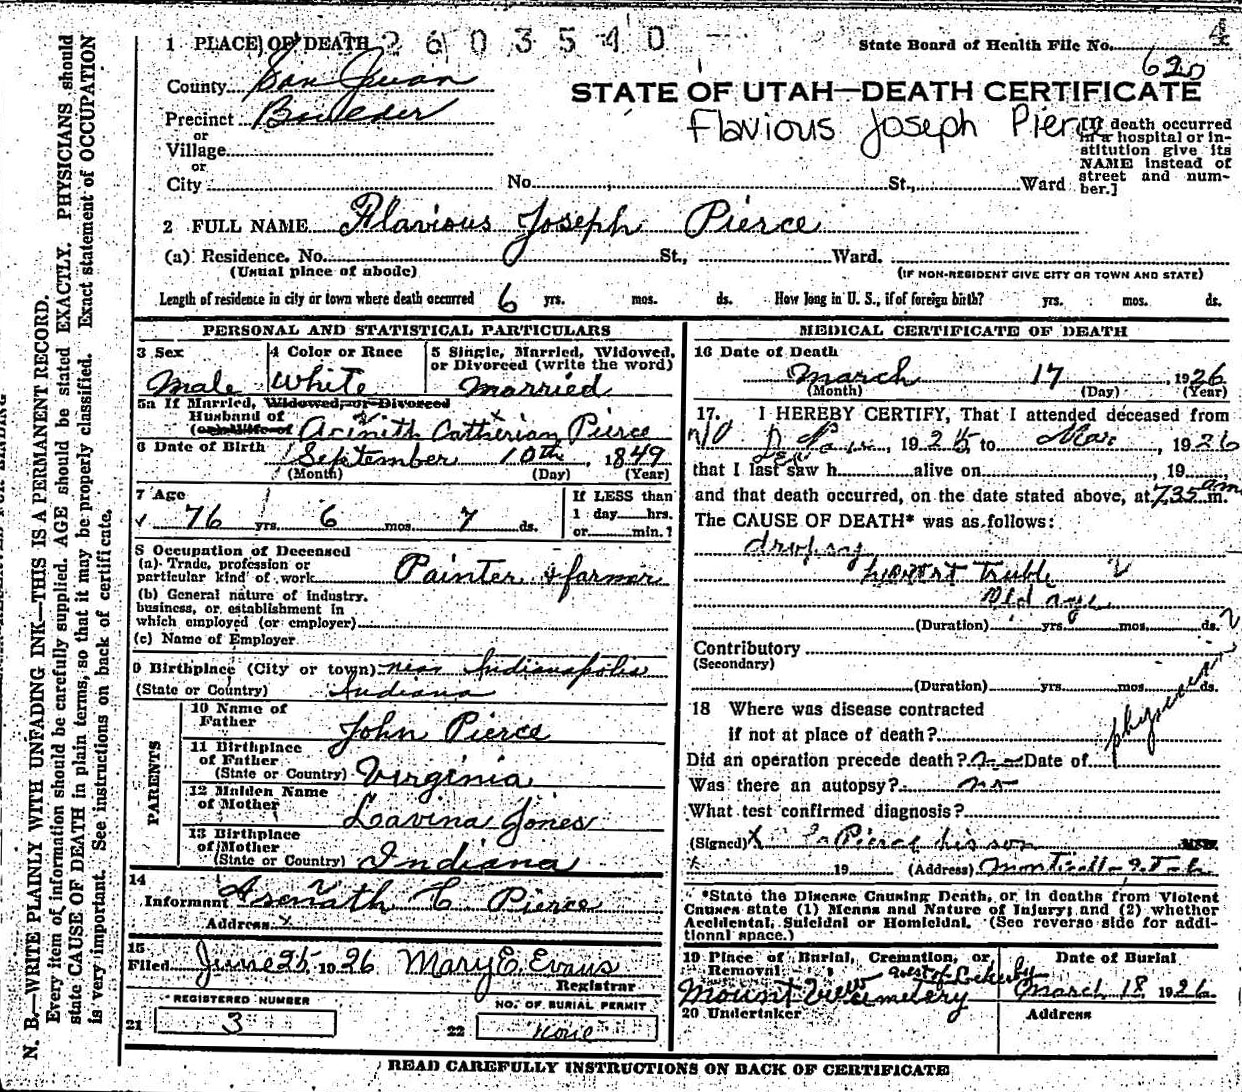 1 PLACE OF DEATH 2603540
State Board of Health File No. 4
620
County San Juan
STATE OF UTAH—DEATH CERTIFICATE
Precinct
Flavious Joseph Pierce
or
Village
or
City No. St., Ward
[If death occurred in a hospital or institution give its NAME instead of street and number.]
2 FULL NAME Flavious Joseph Pierce
(a) Residence. No. St., Ward.
(Usual place of abode) (IF NON-RESIDENT GIVE CITY OR TOWN AND STATE)
Length of residence in city or town where death occurred 6 yrs. mos. ds. How long in U. S., if of foreign birth? yrs. mos. ds.
PERSONAL AND STATISTICAL PARTICULARS
3 Sex 4 Color or Race 5 Single, Married, Widowed, or Divorced (write the word)
Male White Married
5a If Married, Widowed, or Divorced
Husband of
(or Wife of Acinith Catherian Pierce
6 Date of Birth September 10th, 1849
(Month) (Day) (Year)
7 Age If LESS than
76 yrs. 6 mos. 7 ds. 1 day hrs.
or min.?
8 Occupation of Deceased
(a) Trade, profession or
particular kind of work Painter & farmer
(b) General nature of industry,
business, or establishment in
which employed (or employer)
(c) Name of Employer
9 Birthplace (City or town) near Indianapolis
(State or Country) Indiana
PARENTS
10 Name of
Father John Pierce
11 Birthplace
of Father
(State or Country) Virginia
12 Maiden Name
of Mother Lavina Jones
13 Birthplace
of Mother
(State or Country) Indiana
14
Informant Asenath C Pierce
Address x
15
Filed June 25 1926 Mary E. Evans
Registrar
REGISTERED NUMBER NO. OF BURIAL PERMIT
21 3 22 none
MEDICAL CERTIFICATE OF DEATH
16 Date of Death
March 17, 1926
(Month) (Day) (Year)
17. I HEREBY CERTIFY, That I attended deceased from
no 1925 to Mar, 1926
that I last saw h alive on , 19
and that death occurred, on the date stated above, at 7.35 am m.
The CAUSE OF DEATH* was as follows:
dropsy
heart truble
Old age
(Duration) yrs. mos. ds.
Contributory
(Secondary)
(Duration) yrs. mos. ds.
18 Where was disease contracted
if not at place of death?
Did an operation precede death? no Date of
Was there an autopsy? no
What test confirmed diagnosis?
(Signed) X Pierce his son
19 (Address) Monticello
*State the Disease Causing Death, or in deaths from Violent
Causes state (1) Means and Nature of Injury; and (2) whether
Accidental, Suicidal or Homicidal. (See reverse side for addi-
tional space.)
19 Place of Burial, Cremation, or Removal Date of Burial
west of Lockerby
Mount View Cemetery March 18, 1926
20 Undertaker Address
READ CAREFULLY INSTRUCTIONS ON BACK OF CERTIFICATE
N. B.—WRITE PLAINLY WITH UNFADING INK—THIS IS A PERMANENT RECORD.
Every item of information should be carefully supplied. AGE should be stated EXACTLY. PHYSICIANS should
state CAUSE OF DEATH in plain terms, so that it may be properly classified. Exact statement of OCCUPATION
is very important. See instructions on back of certificate.